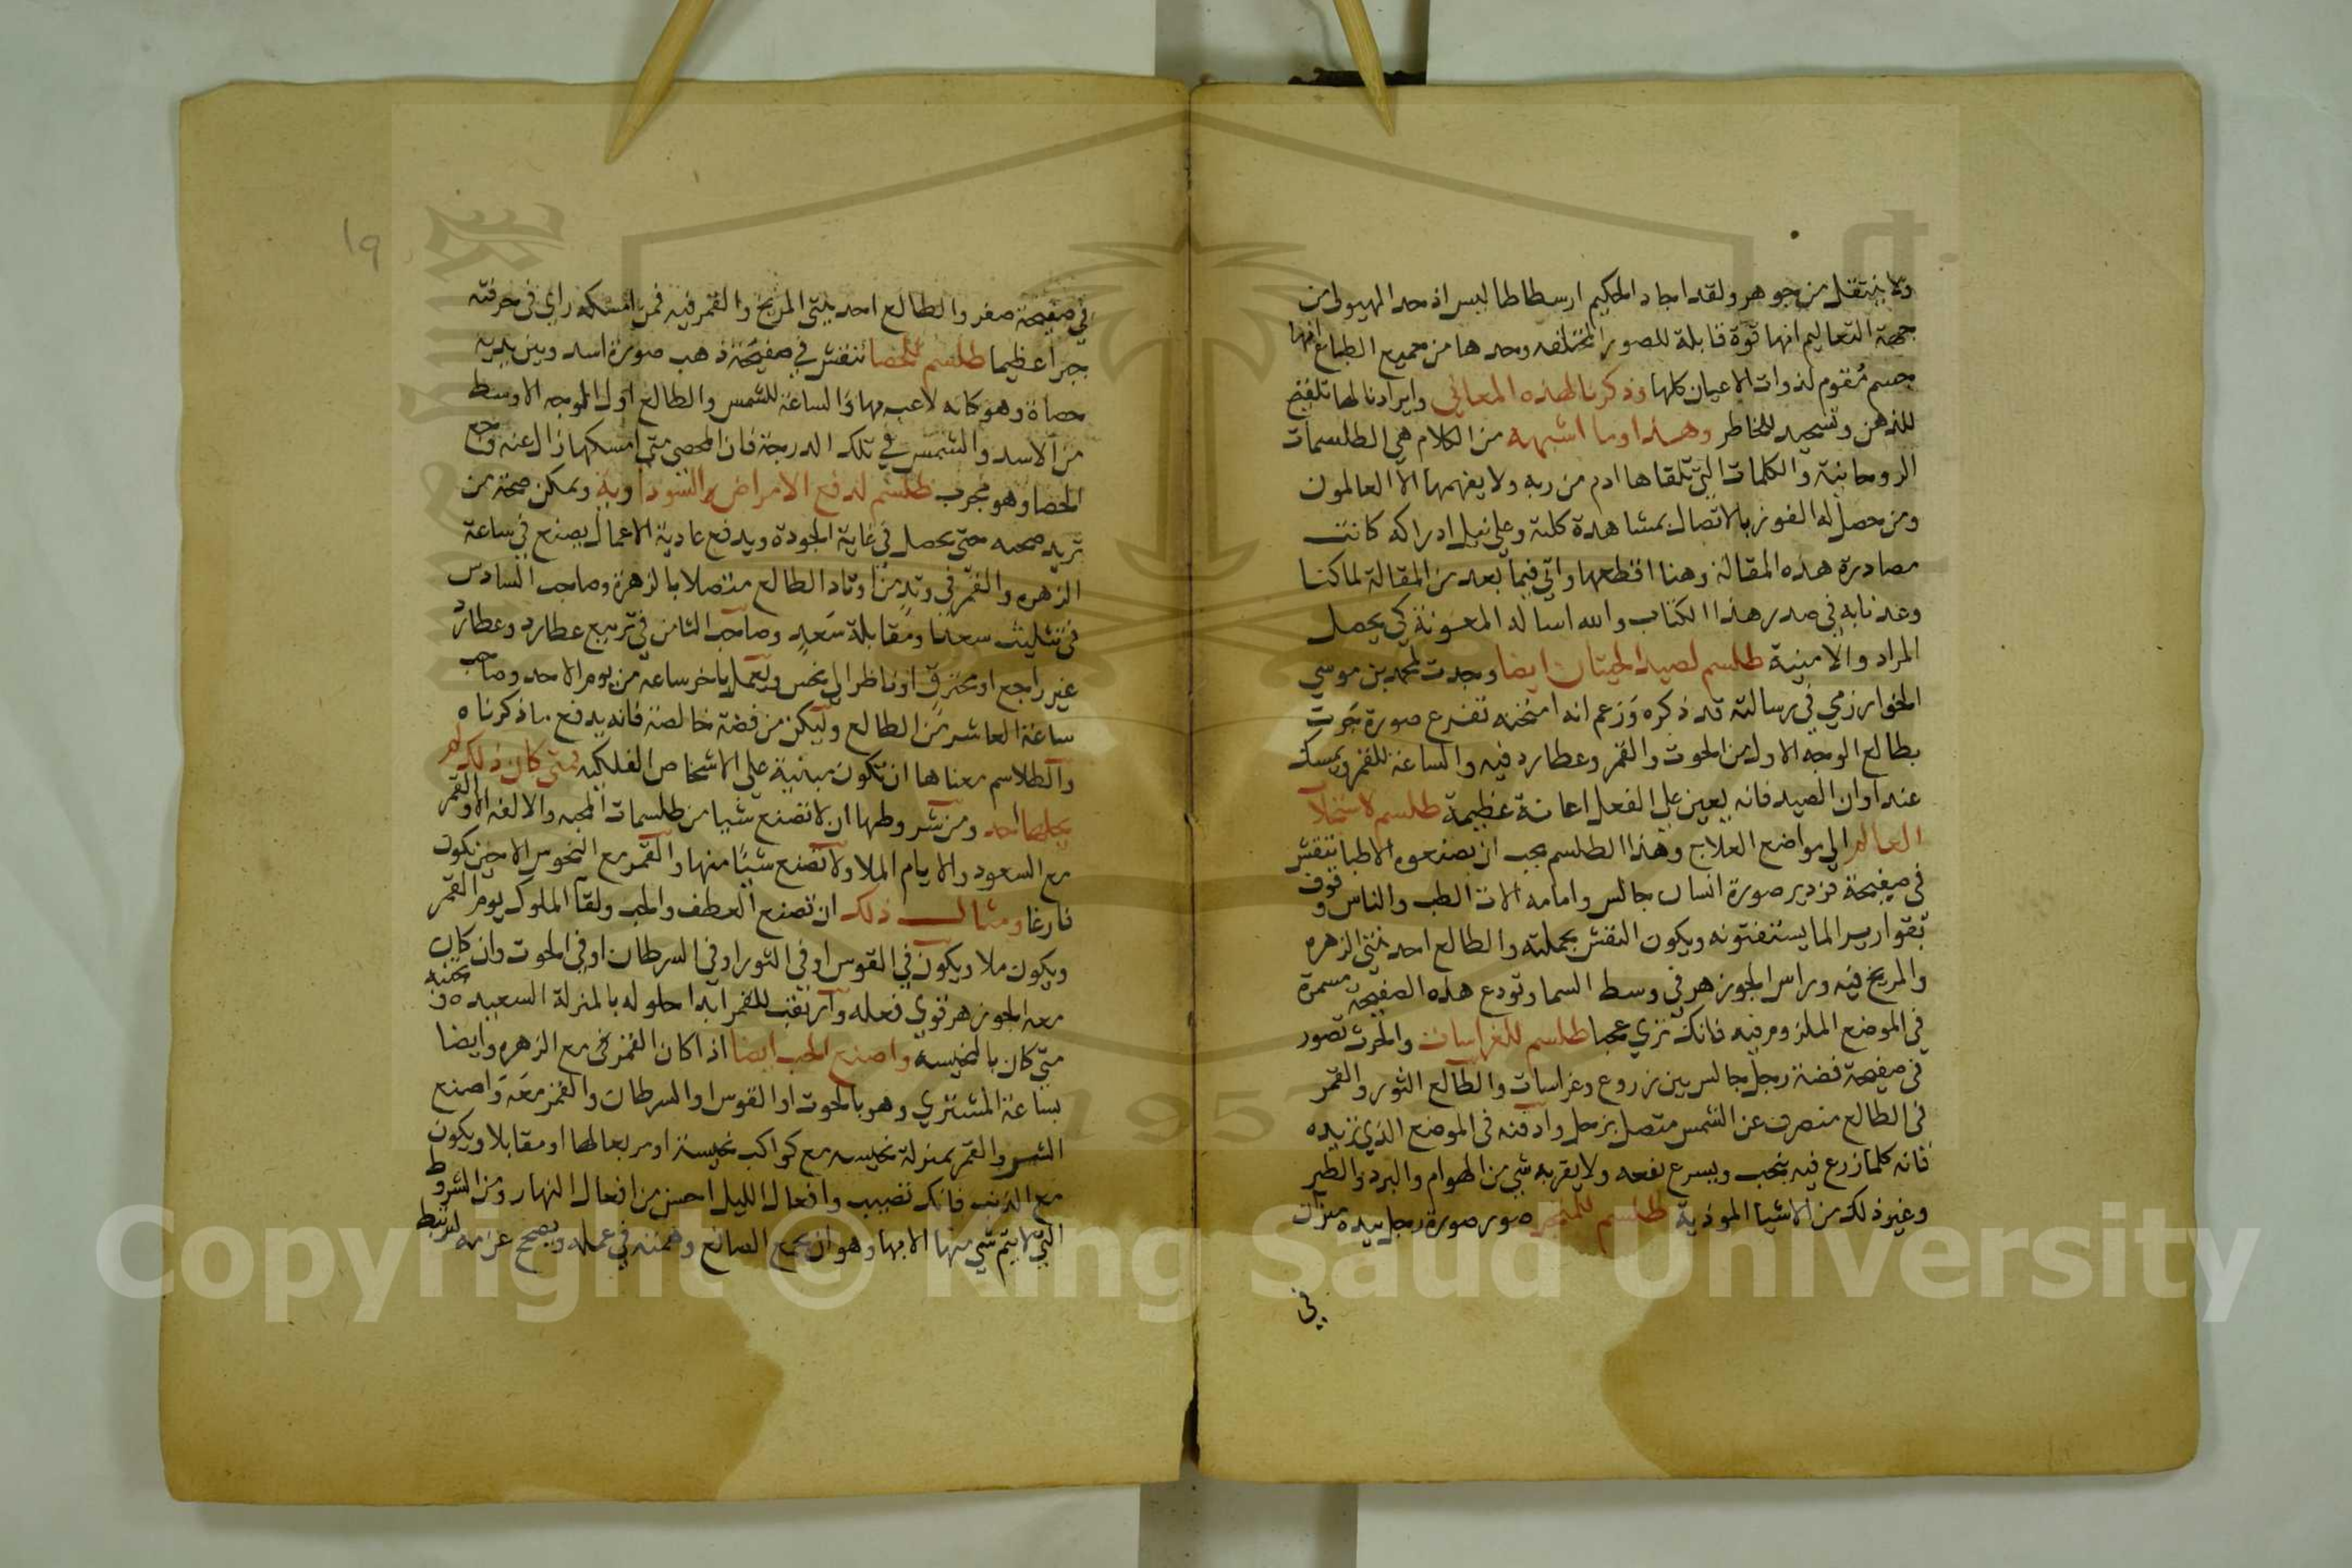 ولا ينتقل من جوهر ولقد اجاد الحكيم ارسطاطاليس اذ حد الهيولي من
جهة التعاليم انها قوة قابلة للصور المختلفه وحدها من جميع الطبايع انها
جسم مقوم لذوات الاعيان كلها وذكرنا لهذه المعاني وايرادنا لها تلقيح
للذهن وتسحيد للخاطر وهذا وما اشبهه من الكلام هي الطلسمات
الروحانية والكلمات التي تلقاها ادم من ربه ولا يفهمها الا العالمون
ومن حصل له الفوز بالاتصال بمشاهدة كلية وعلي نيل ادراكه كانت
مصادرة هذه المقالة وهنا اقطعها واتي فيما بعد من المقالة لما كنا
وعدنا به في صدر هذا الكتاب والله اساله المعونة كي يحصل
المراد والامنية طلسم لصيد الحيتان ايضا وجدت لمحمد بن موسي
الخوارزمي في رسالته قد ذكره وزعم انه امتحنه تفرع صورة حوت
بطالع الوجه الاول من الحوت والقمر وعطارد فيه والساعة للقمر ويمسك
عند اوان الصيد فانه يعين علي الفعل اعانة عظيمة طلسم لاستجلا
العالم الي مواضع العلاج وهذا الطلسم يجب ان يصنعوه الاطبا تنقش
في صفيحة قزدير صورة انسان جالس وامامه الات الطب والناس وقوف
بقوارير الما يستفتونه ويكون النقش بجملته والطالع احد بيتي الزهره
والمريخ فيه وراس الجوزهر في وسط السما وتودع هذه الصفيحة مسمرة
في الموضع الملزوم فيه فانك تري عجبا طلسم للغراسات والحرث تصور
في صفيحة فضة رجل جالس بين زروع وغراسات والطالع الثور والقمر
في الطالع منصرف عن الشمس متصل بزحل وادفنه في الموضع الذي تريده
فانه كلما زرع فيه ينجب ويسرع نفعه ولا يقربه شي من الهوام والبرد والطير
وغير ذلك من الاشيا الموذية طلسم للمتجر صور صورة رجل بيده ميزان
في
١٩
في صفيحة صفر والطالع احد بيتي المريخ والقمر فيه فمن امسكه راي في حرفته
جبرا عظيما طلسم للحصا تنقش في صفيحة ذهب صورة اسد وبين يديه
حصاة وهو كانه لاعب بها والساعة للشمس والطالع اول الوجه الاوسط
من الاسد والشمس في تلك الدرجة فان المحصي متي امسكها زال عنه وجع
الحصا وهو مجرب طلسم لدفع الامراض السوداوية ويمكن صحة من
تريد صحته حتي يحصل في غاية الجودة ويدفع عادية الاعمال يصنع في ساعة
الزهره والقمر في وتد من اوتاد الطالع متصلا بالزهرة وصاحب السادس
في تثليث سعد او مقابلة سعد وصاحب الثامن في تربيع عطارد وعطارد
غير راجع او محترق او ناظر الي نحس وليعمل باخر ساعة من يوم الاحد وصاحب
ساعة العاشر من الطالع وليكن من فضة خالصة فانه يدفع ما ذكرناه
والطلاسم معناها ان تكون مبنية علي الاشخاص الفلكيه فمتي كان ذلك لم
يحلها احد ومن شروطها ان لا تصنع شيا من طلسمات المحبه والالفه الا والقمر
مع السعود والايام الملا ولا تصنع شيا منها والقمر مع النحوس الا حين تكون
فارغا ومثال ذلك ان تصنع العطف والحب ولقا الملوك يوم القمر
ويكون ملا ويكون في القوس او في الثور او في السرطان او في الحوت وان كان
معه الجوزهر قوي فعله وارتقب للقمر ابدا حلوله بالمنزلة السعيده وتجنبه
متي كان بالنحيسة واصنع الحب ايضا اذا كان القمر في مع الزهره وايضا
بساعة المشتري وهو بالحوت او القوس او السرطان والقمر معه واصنع
الشر والقمر بمنزلة نحيسه مع كواكب نحيسة او مربعا لها او مقابلا ويكون
مع الذنب فانك تصيب وافعال الليل احسن من افعال النهار ومن الشروط
التي لا يتم شي منها الا بها وهو ان يجمع الصانع وهمته في عمله ويصحح عزمه لترتبط
Copyright © King Saud University
1957